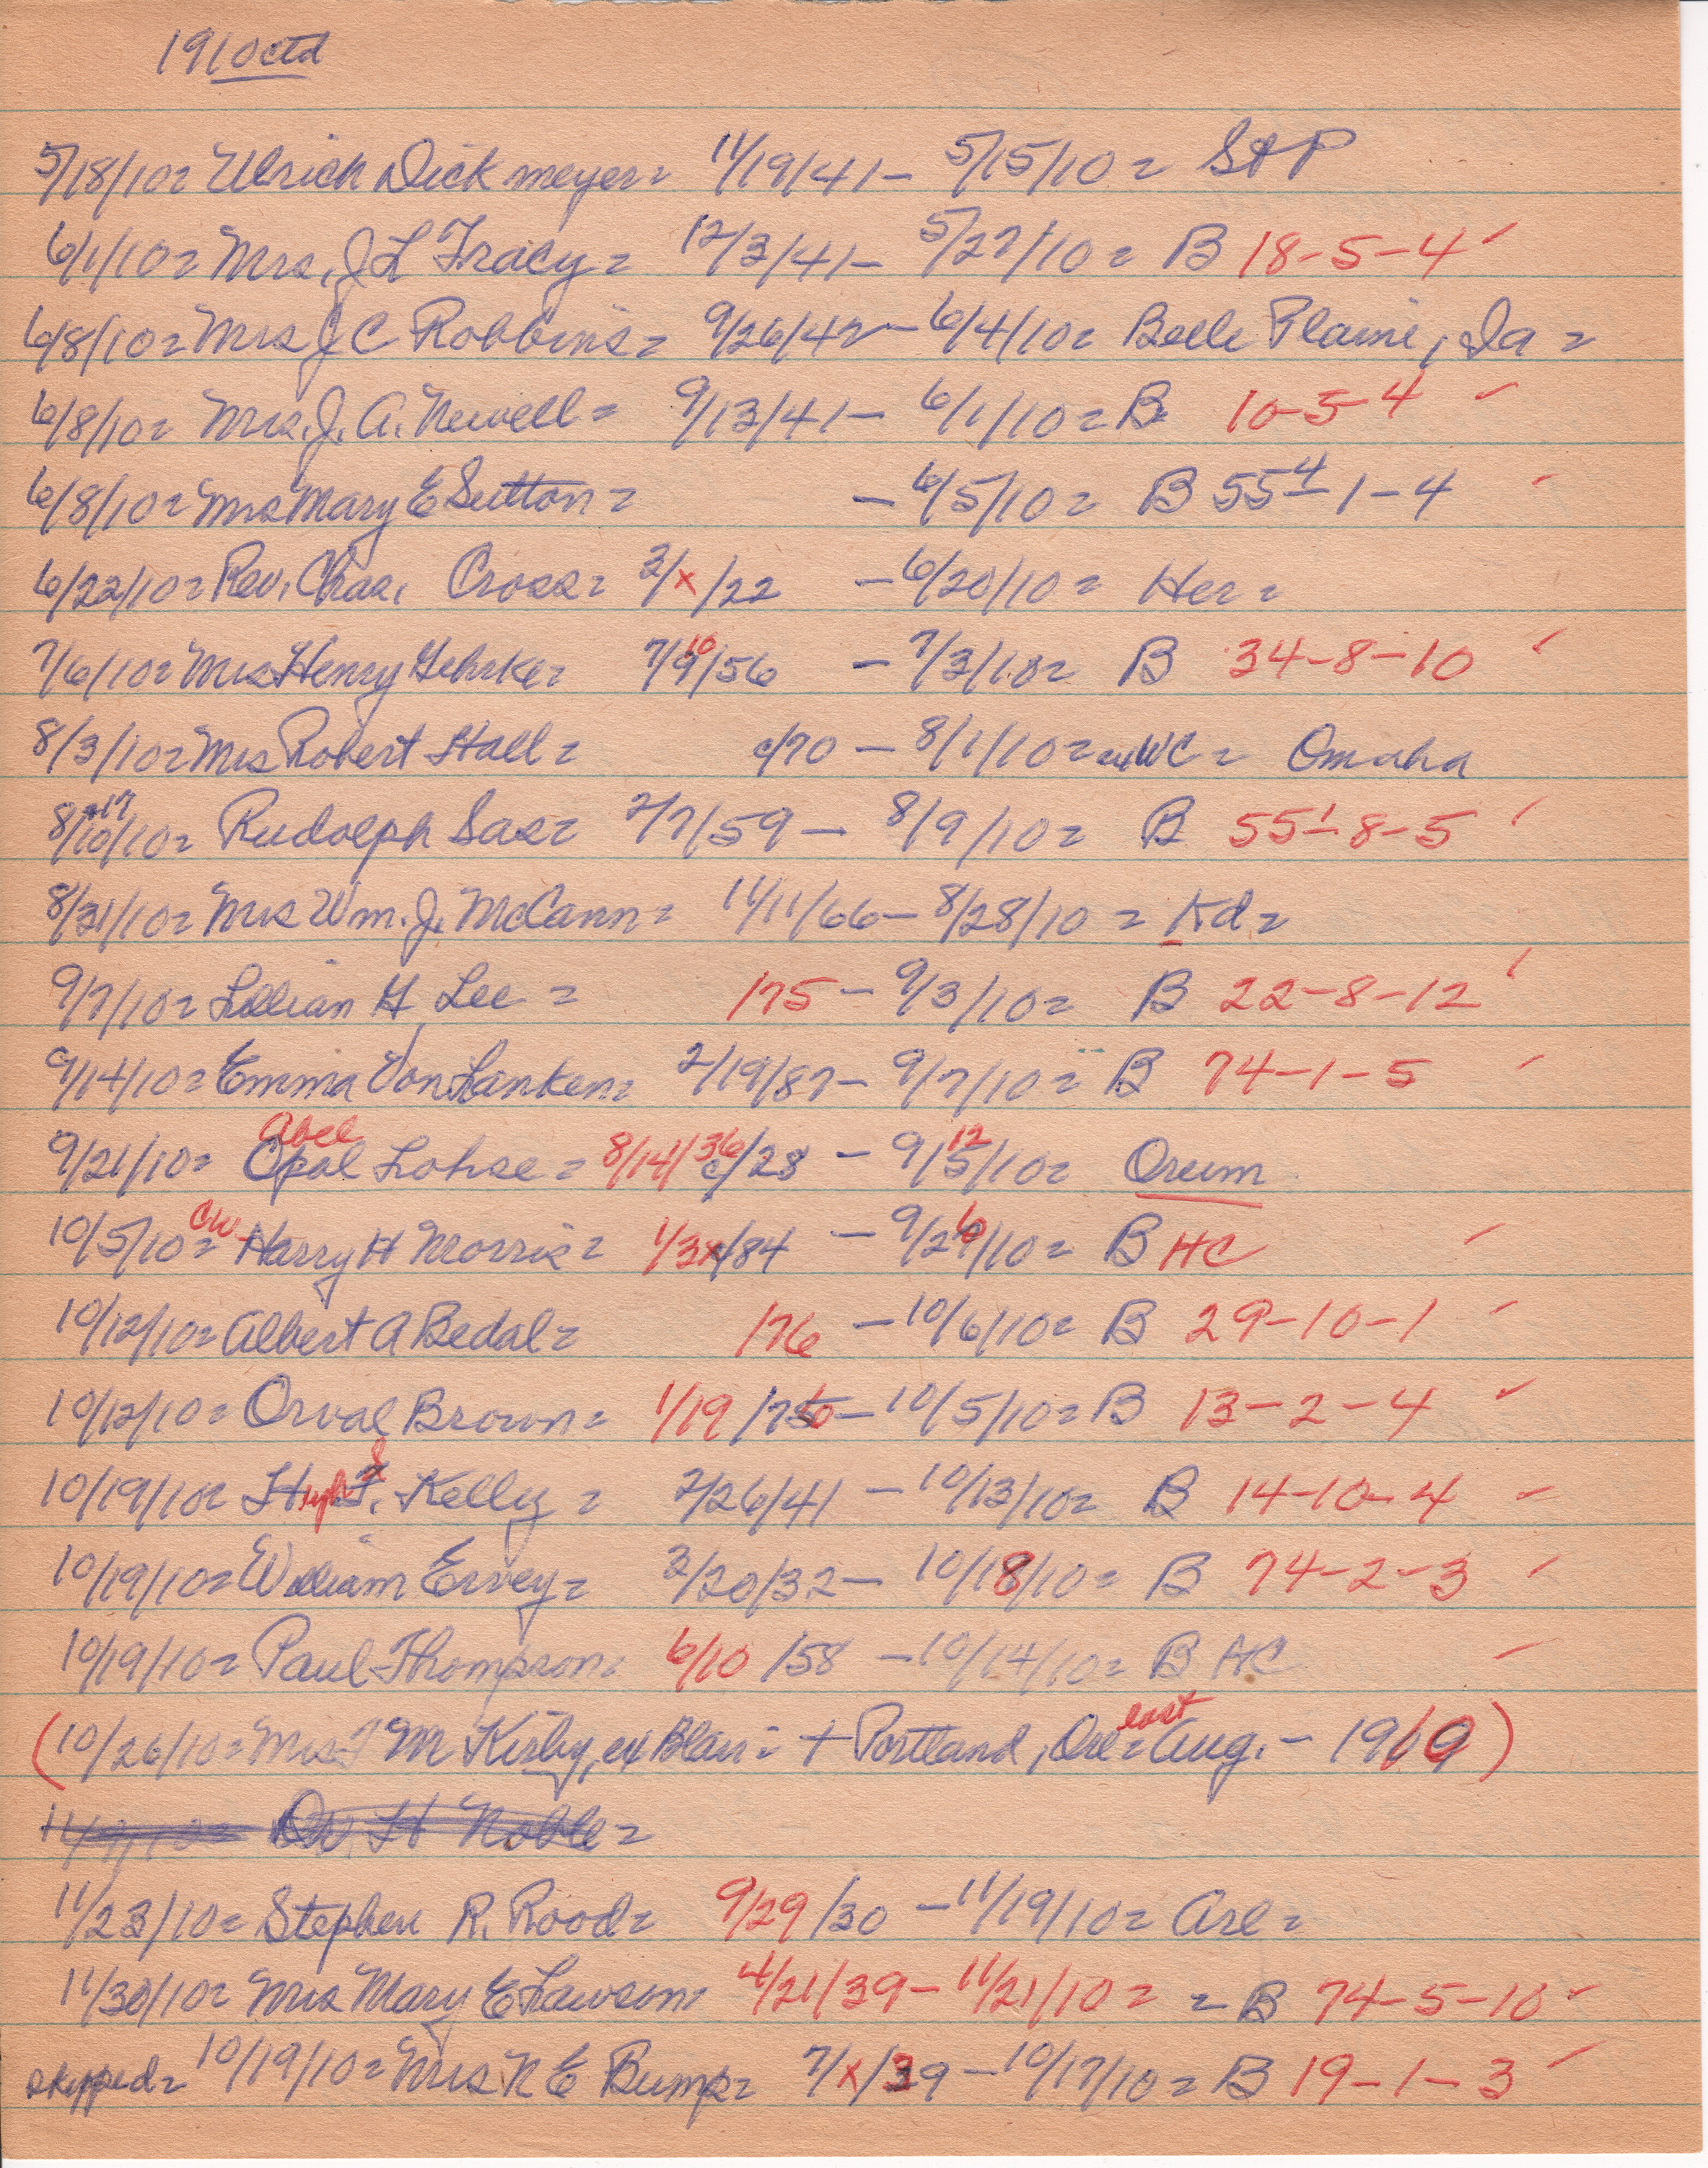 1910 ctd
5/18/10= Ulrich Dickmeyer= 11/19/41- 5/15/10= StP
6/1/10= Mrs. J L Tracy= 12/3/41- 5/27/10= B 18-5-4 ✓
6/8/10= Mrs J C Robbins= 9/26/42- 6/4/10= Belle Plaine, Ia=
6/8/10= Mrs. J. A. Newell= 9/13/41- 6/1/10= B 10-5-4 ✓
6/8/10= Mrs Mary E Sutton= - 6/5/10= B 55 4-1-4 ✓
6/22/10= Rev. Chas. Cross= 3/x/22 - 6/20/10= Her=
7/6/10= Mrs Henry Gehrke= 7/9 10/56 - 7/3/10= B 34-8-10 ✓
8/3/10= Mrs Robert Hall= c/70 - 8/1/10= ex WC= Omaha
8/10+17/10= Rudolph Sas= 2/7/59- 8/9/10= B 55 1-8-5 ✓
8/31/10= Mrs Wm. J. McCann= 11/11/66- 8/28/10= Kd=
9/7/10= Lillian H Lee= /75- 9/3/10= B 22-8-12 ✓
9/14/10= Emma VonLanken= 2/19/87- 9/7/10= B 74-1-5 ✓
9/21/10= Opal Abel Lohse= 8/14/36 c/28 - 9/5 12/10= Orum
10/5/10= CW Harry H Morris= 1/3x/84 - 9/26/10= B HC ✓
10/12/10= Albert A Bedal= /76 - 10/6/10= B 29-10-1 ✓
10/12/10= Orval Brown= 1/19/76- 10/5/10= B 13-2-4 ✓
10/19/10= Kelly= 2/26/41 - 10/13/10= B 14-10-4 ✓
10/19/10= William Ervey= 3/20/32- 10/18/10= B 74-2-3 ✓
10/19/10= Paul Thompson= 6/10/58 - 10/14/10= B HC ✓
(10/26/10= Mrs T M Kirby, ex Blair= + Portland, Ore= last Aug. - 1909)
H Noble=
11/23/10= Stephen R. Rood= 9/29/30 - 11/19/10= Arl=
11/30/10= Mrs Mary E Lawson= 4/21/39- 11/21/10= = B 74-5-10 ✓
skipped= 10/19/10= Mrs N E Bump= 7/x/39- 10/17/10= B 19-1-3 ✓